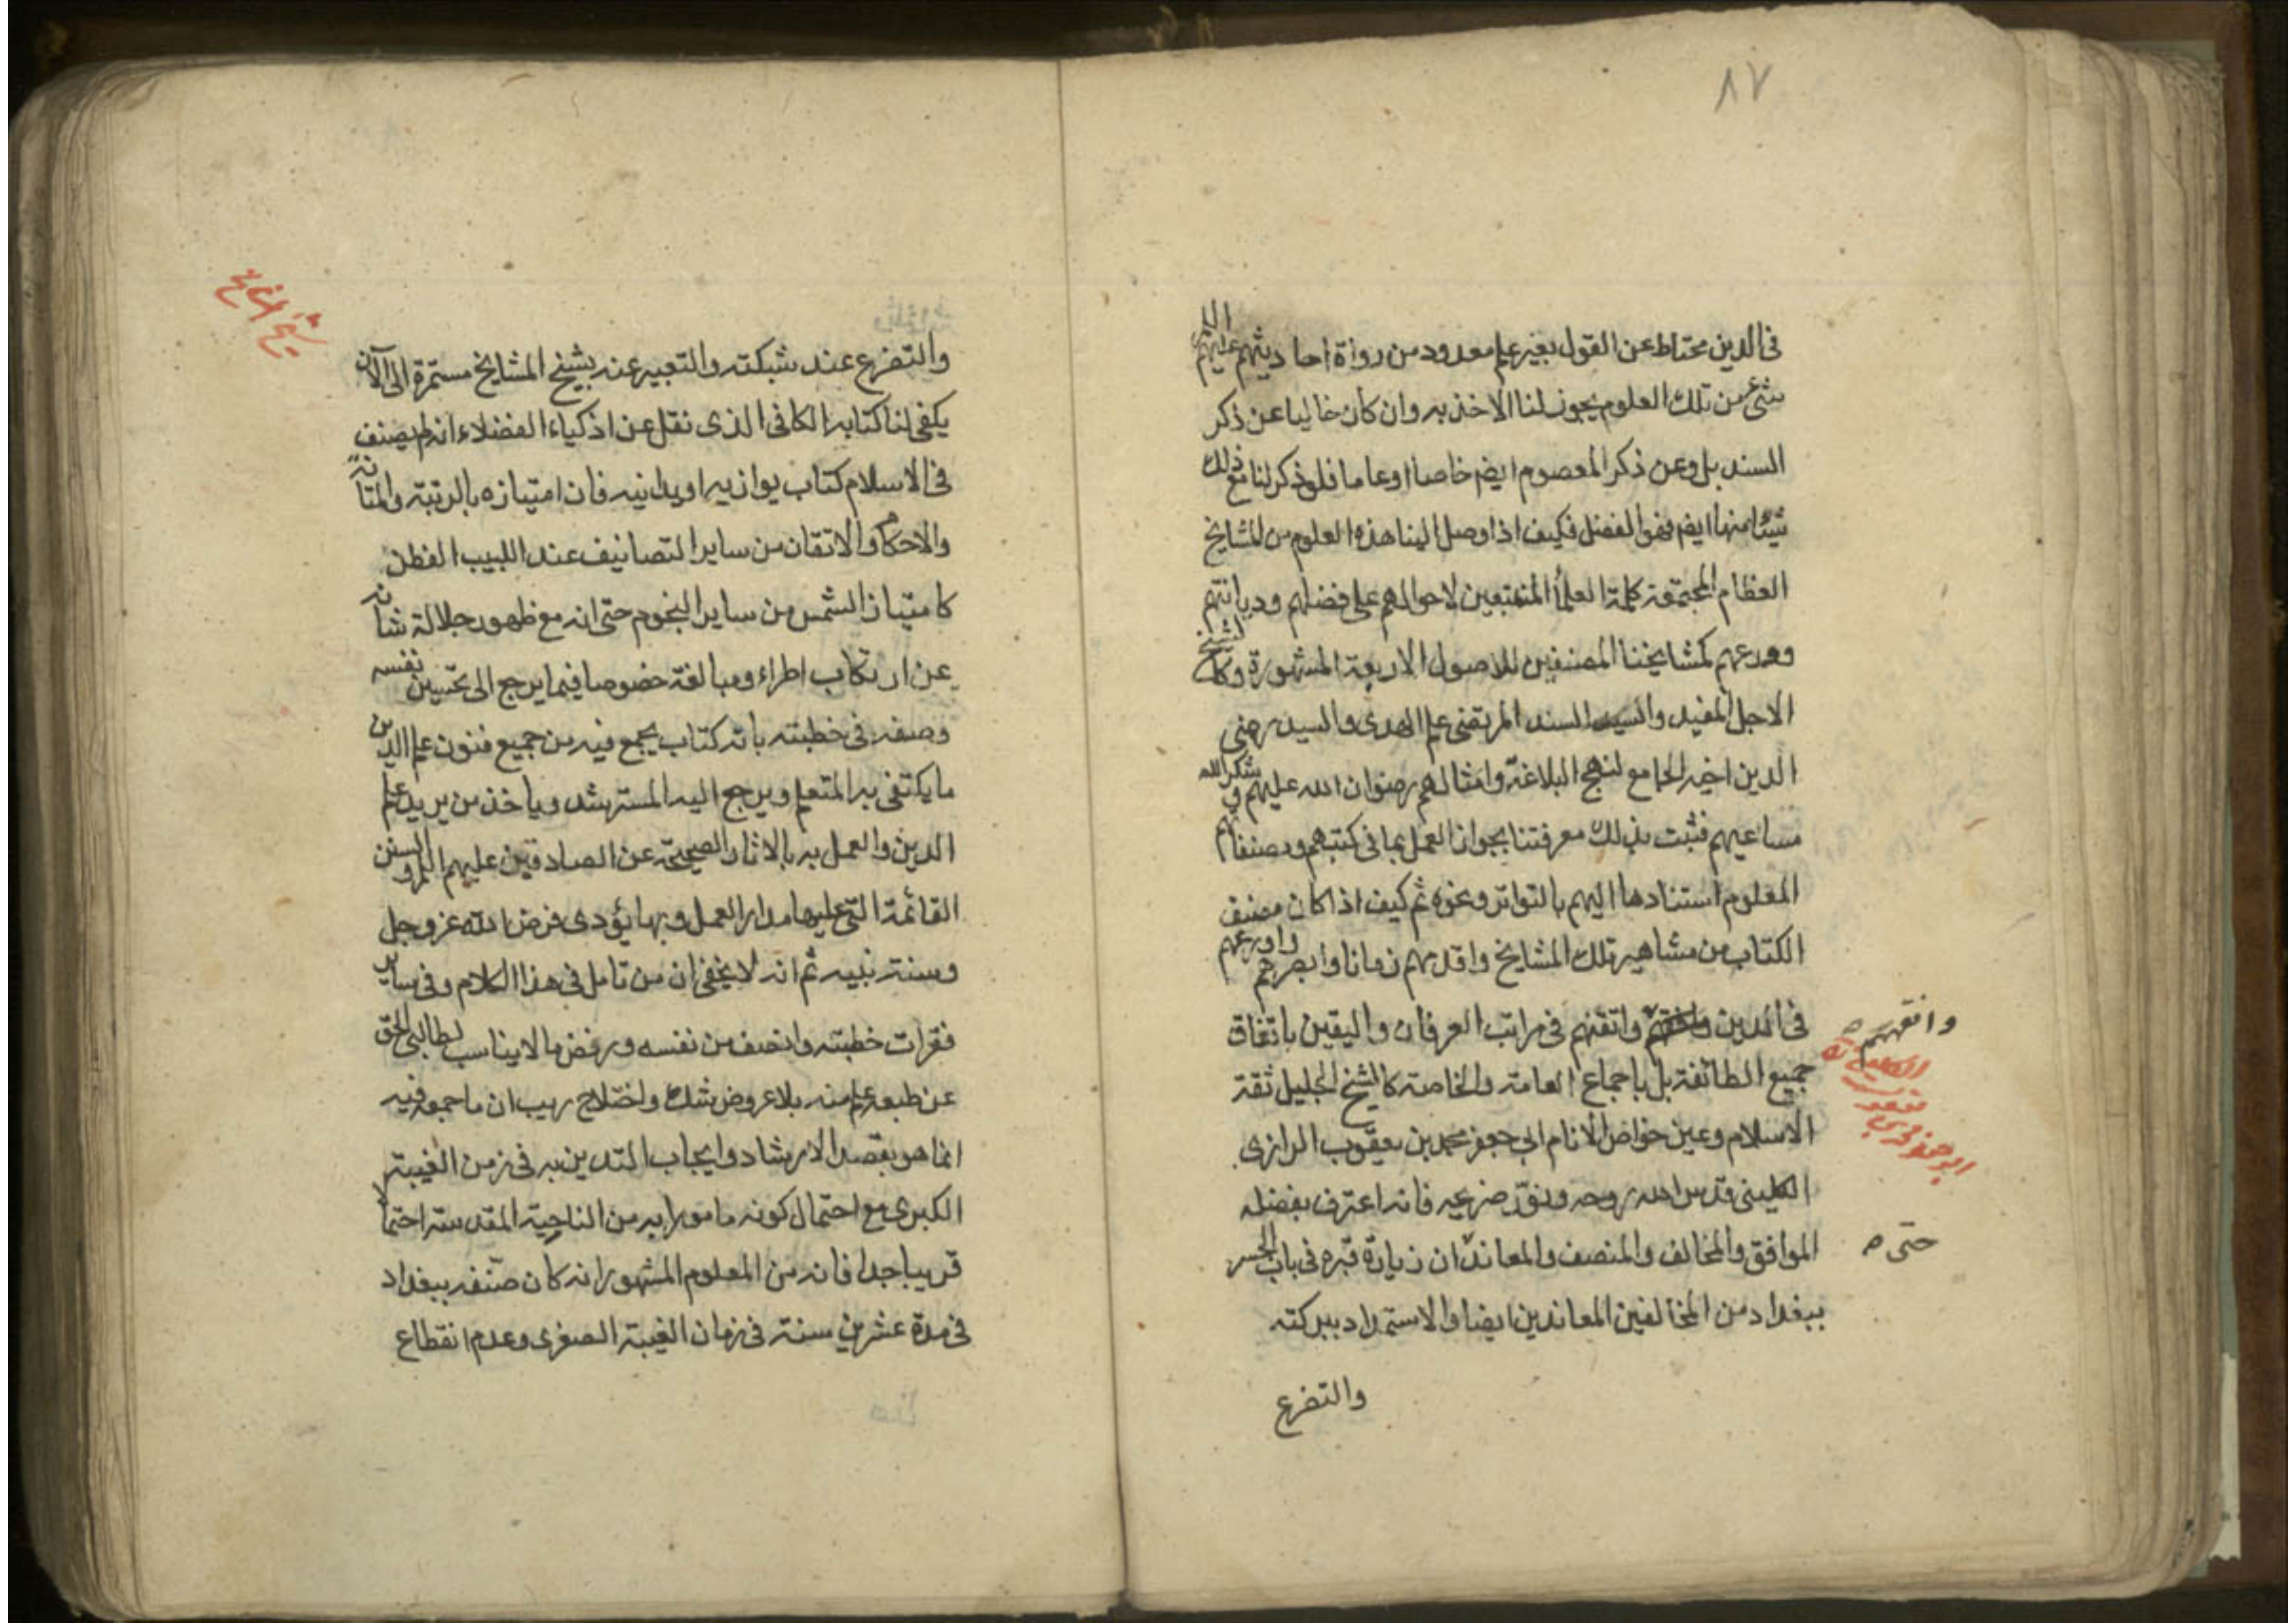 ٨٧
في الدين محتاط عن القول بغير علم معدود من رواة احاديثهم عليهم السلم
شئ من تلك العلوم يجوز لنا الاخذ به وان كان خاليا عن ذكر
السند بل وعن ذكر المعصوم ايضم خاصا او عاما فلو ذكر لنا مع ذلك
شيئا منها ايضم فهو الفضل فكيف اذا وصل الينا هذه العلوم من المشايخ
العظام المجتمعة كلمة العلمأ المتتبعين لاحوالهم على فضلهم وديانتهم
وورعهم كمشايخنا المصنفين للاصول الاربعة المشهورة وكالشيخ
الاجل المفيد والسيد السند المرتضى علم الهدى والسيد رضي
الدين اخيه الجامع لنهج البلاغة وامثالهم رضوان الله عليهم و شكر الله
مساعيهم فثبت بذلك معرفتنا بجواز العمل بما في كتبهم ومصنفاتهم
المعلوم استنادها اليهم بالتواتر ونحوه ثم كيف اذا كان مصنف
الكتاب من مشاهير تلك المشايخ واقدمهم زمانا وابصرهم واورعهم
في الدين واتقنهم في مراتب العرفان واليقين باتفاق
وافقههم ه
جميع الطائفة بل باجماع العامة والخاصة كالشيخ الجليل ثقة
الاسلام وعين خواص الانام ابي جعفر محمد بن يعقوب الرازي
الكليني قدس الله روحه ونوّر ضريحه فانه اعترف بفضله
الموافق والمخالف والمنصف والمعاند ان زيارة قبره في باب الجسر
حتى ه
ببغداد من المخالفين المعاندين ايضا والاستمداد ببركته
والتضرع
والتضرع عند شبكته والتعبير عنه بشيخ المشايخ مستمرة الى الآن
شيخ المشايخ
يكفي لنا كتابه الكافي الذي نقل عن اذكياء الفضلاء انه لم يصنف
في الاسلام كتاب يوازيه او يدانيه فان امتيازه بالرتبة والمتانة
والاحكام والاتقان من ساير التصانيف عند اللبيب الفطن
كامتياز الشمس من ساير النجوم حتى انه مع ظهور جلالة شانه
عن ارتكاب اطراء ومبالغة خصوصا فيما يرجع الى تحسين نفسه
وصفه في خطبته بانه كتاب يجمع فيه من جميع فنون علم الدين
ما يكتفى به المتعلم ويرجع اليه المسترشد وياخذ من يريد علم
الدين والعمل به بالاثار الصحيحة عن الصادقين عليهم السلم والسنن
القائمة التي عليها مدار العمل وبها يؤدى فرض الله عز وجل
وسنة نبيه ثم انه لا يخفى ان من تامل في هذا الكلام وفي ساير
فقرات خطبته وانصف من نفسه ورفض ما لا يناسب لطالبي الحق
عن طبعه علم منه بلا عروض شك واختلاج ريب ان ما جمعه فيه
انما هو بقصد الارشاد وايجاب التدين به في زمن الغيبة
الكبرى مع احتمال كونه مامورا به من الناحية المقدسة احتمالا
قريبا جدا فانه من المعلوم المشهور انه كان صنّفه ببغداد
في مدة عشرين سنة في زمان الغيبة الصغرى وعدم انقطاع